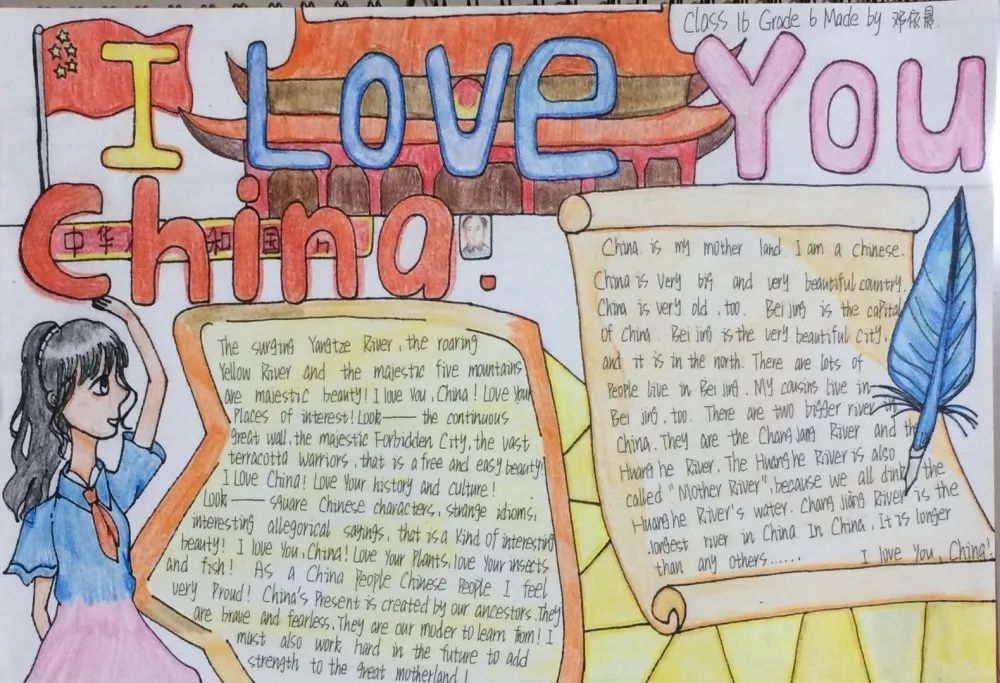 Class 16 Grade 6 Made by 邓依晨
I Love You
China.
中华 和国
The surging Yangtze River, the roaring
Yellow River and the majestic five mountains
are majestic beauty! I love You, China! Love Your
Places of interest! Look—— the continuous
great wall, the majestic Forbidden City, the vast
terracotta warriors, that is a free and easy beauty!
I Love China! Love Your history and culture!
Look—— square Chinese characters, strange idioms,
interesting allegorical sayings, that is a kind of interesting
beauty! I love You, China! Love Your Plants, love Your inserts
and fish! As a China People Chinese People I feel
very Proud! China's Present is created by our ancestors. They
are brave and fearless. They are our muder to learn from! I
must also work hard in the future to add
strength to the great motherland!
China is my mother land. I am a chinese.
China is very big and very beautiful country.
China is very old, too. Bei jing is the capital
of China. Bei jing is the very beautiful city,
and it is in the north. There are lots of
People live in Bei jing. My cousins live in
Bei jing, too. There are two bigger river in
China. They are the Chang Jiang River and the
Huang he River. The Huang he River is also
called "Mother River", because we all drink the
Huang he River's water. Chang jiang River is the
longest river in China. In China, It is longer
than any others...... I love You, China!